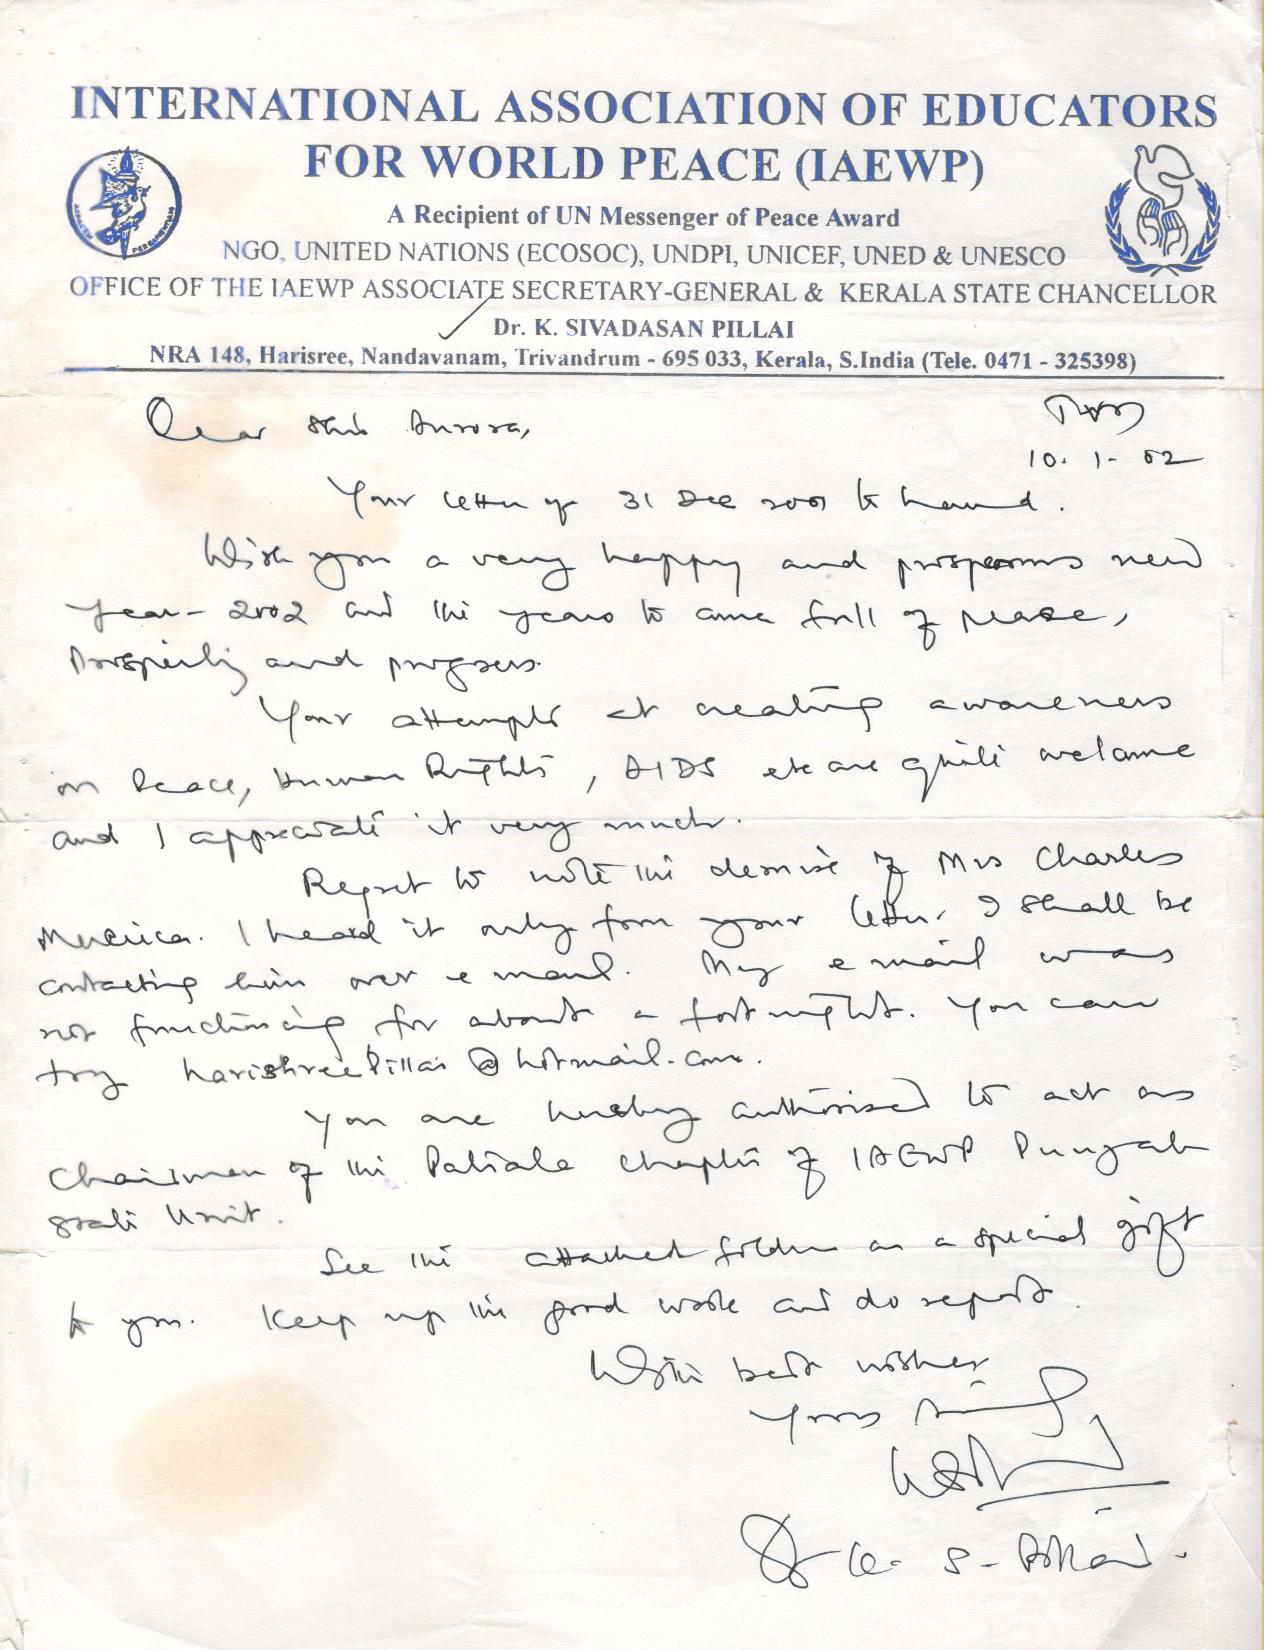 INTERNATIONAL ASSOCIATION OF EDUCATORS
FOR WORLD PEACE (IAEWP)
A Recipient of UN Messenger of Peace Award
NGO, UNITED NATIONS (ECOSOC), UNDPI, UNICEF, UNED & UNESCO
OFFICE OF THE IAEWP ASSOCIATE SECRETARY-GENERAL & KERALA STATE CHANCELLOR
Dr. K. SIVADASAN PILLAI
NRA 148, Harisree, Nandavanam, Trivandrum - 695 033, Kerala, S.India (Tele. 0471 - 325398)
Dear Shri Aurora,
10. 1- 02
Your letter of 31 Dec 2001 to hand.
Wish you a very happy and prosperous new
Year - 2002 and the years to come full of peace,
Prosperity and progress.
Your attempts at creating awareness
on Peace, Human Rights, AIDS etc are quite welcome
and I appreciate it very much.
Regret to note the demise of Mrs Charles
Mercieca. I heard it only from your letter. I shall be
contacting him over e mail. My e mail was
not functioning for about a fortnight. You can
try harishreePillai@hotmail.com.
You are hereby authorised to act as
Chairman of the Patiala Chapter of IAEWP Punjab
State Unit.
See the attached folder as a special gift
to you. Keep up the good work and do report.
With best wishes
Yours
Dr K. S. Pillai.